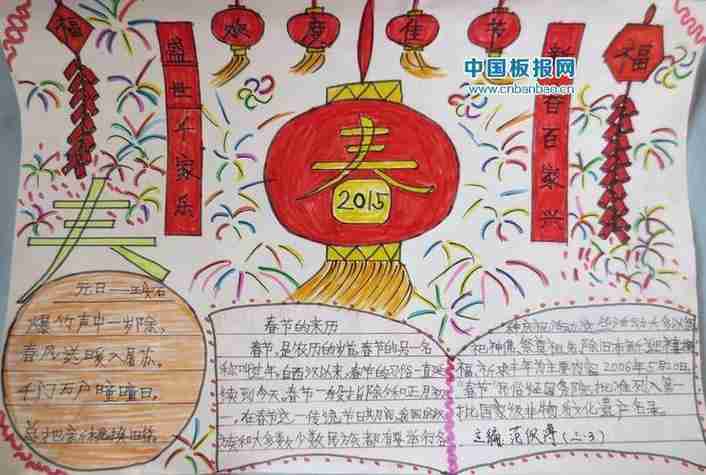 福
欢度佳节
福
盛世千家乐
新春百家兴
中国板报网
www.cnbanbao.cn
春
2015
春
元日——王安石
爆竹声中一岁除，
春风送暖入屠苏。
千门万户曈曈日，
总把新桃换旧符。
春节的来历
春节，是农历的岁首，春节的另一名
称叫过年，自西汉以来，春节的习俗一直延
续到今天，春节一般指除夕和正月初
一，在春节这一传统节日期间，我国的汉
族和大多数少数民族都有要举行各
种庆祝活动，这些活动大多以祭
祀神佛、祭奠祖先、除旧布新、迎禧接
福、祈求丰年为主要内容。2006年5月20日，
"春节"民俗经国务院批准列入第一
批国家级非物质文化遗产名录。
主编
(二·3)